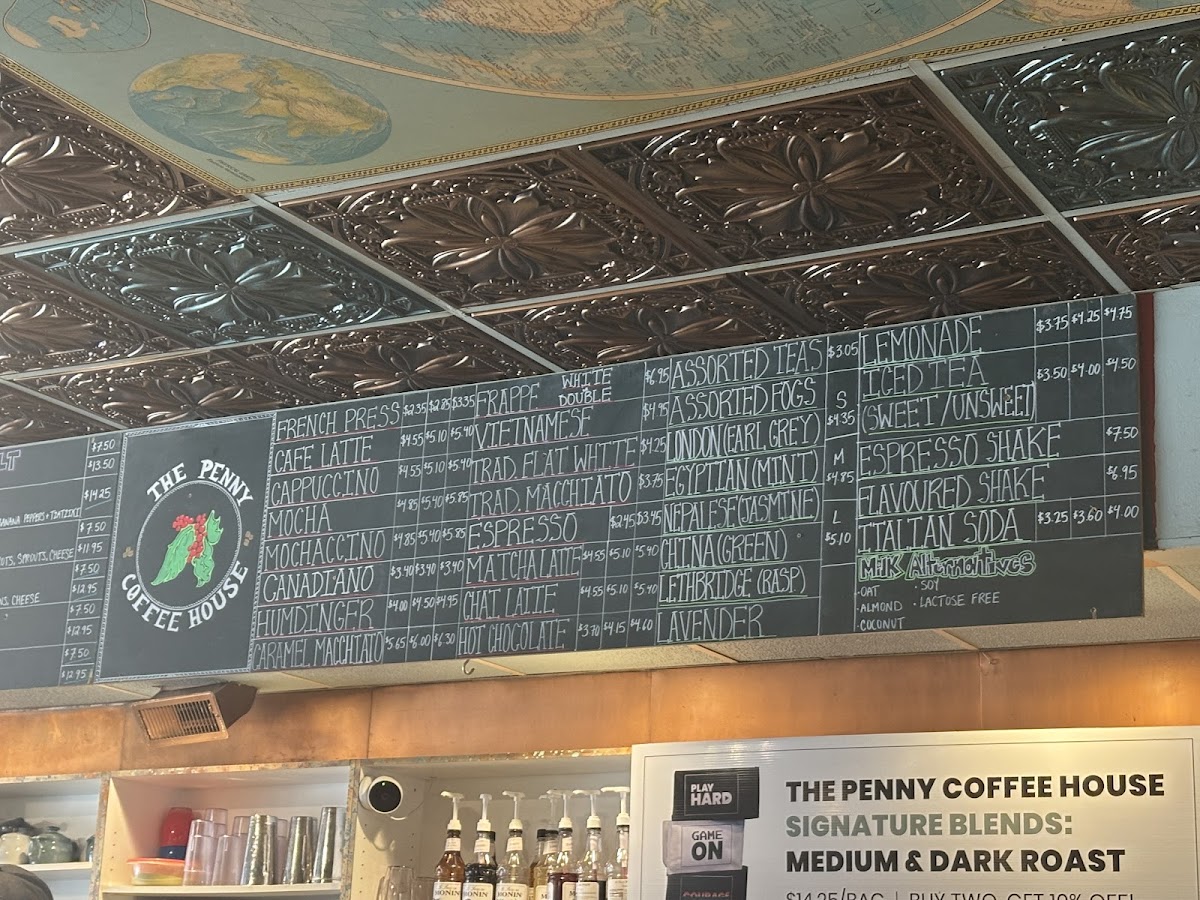 LT
$7.50
$13.50
$14.25
BANANA PEPPERS + TZATZIKI
$7.50
OTS, SPROUTS, CHEESE $11.95
$7.50
$12.95
NS, CHEESE $7.50
$12.95
$7.50
$12.95
THE PENNY
COFFEE HOUSE
FRENCH PRESS $2.35 $2.85 $3.35
CAFE LATTE $4.55 $5.10 $5.40
CAPPUCCINO $4.55 $5.10 $5.40
MOCHA $4.85 $5.40 $5.85
MOCHACCINO $4.85 $5.40 $5.85
CANADIANO $3.40 $3.40 $3.90
HUMDINGER $4.00 $4.50 $4.95
CARAMEL MACCHIATO $5.65 $6.00 $6.30
FRAPPE WHITE DOUBLE $6.95
VIETNAMESE $4.95
TRAD. FLAT WHITE $4.25
TRAD. MACCHIATO $3.75
ESPRESSO $2.45 $3.45
MATCHA LATTE $4.55 $5.10 $5.40
CHAI LATTE $4.55 $5.10 $5.40
HOT CHOCOLATE $3.70 $4.15 $4.60
ASSORTED TEAS $3.05
ASSORTED FOGS
LONDON (EARL GREY)
EGYPTIAN (MINT)
NEPALESE (JASMINE)
CHINA (GREEN)
LETHBRIDGE (RASP.)
LAVENDER
S
$4.35
M
$4.85
L
$5.10
LEMONADE $3.75 $4.25 $4.75
ICED TEA $3.50 $4.00 $4.50
(SWEET / UNSWEET)
ESPRESSO SHAKE $7.50
FLAVOURED SHAKE $6.95
ITALIAN SODA $3.25 $3.60 $4.00
Milk Alternatives
·OAT · SOY
·ALMOND · LACTOSE FREE
·COCONUT
PLAY
HARD
GAME
ON
COURAGE
THE PENNY COFFEE HOUSE
SIGNATURE BLENDS:
MEDIUM & DARK ROAST
$14.25/BAG | BUY TWO, GET 10% OFF!
MONIN
MONIN
MONIN